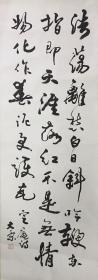 浩蕩離愁白日斜吟鞭東
指即天涯落紅不是無情
物化作春泥更護花
定庵詩
大康